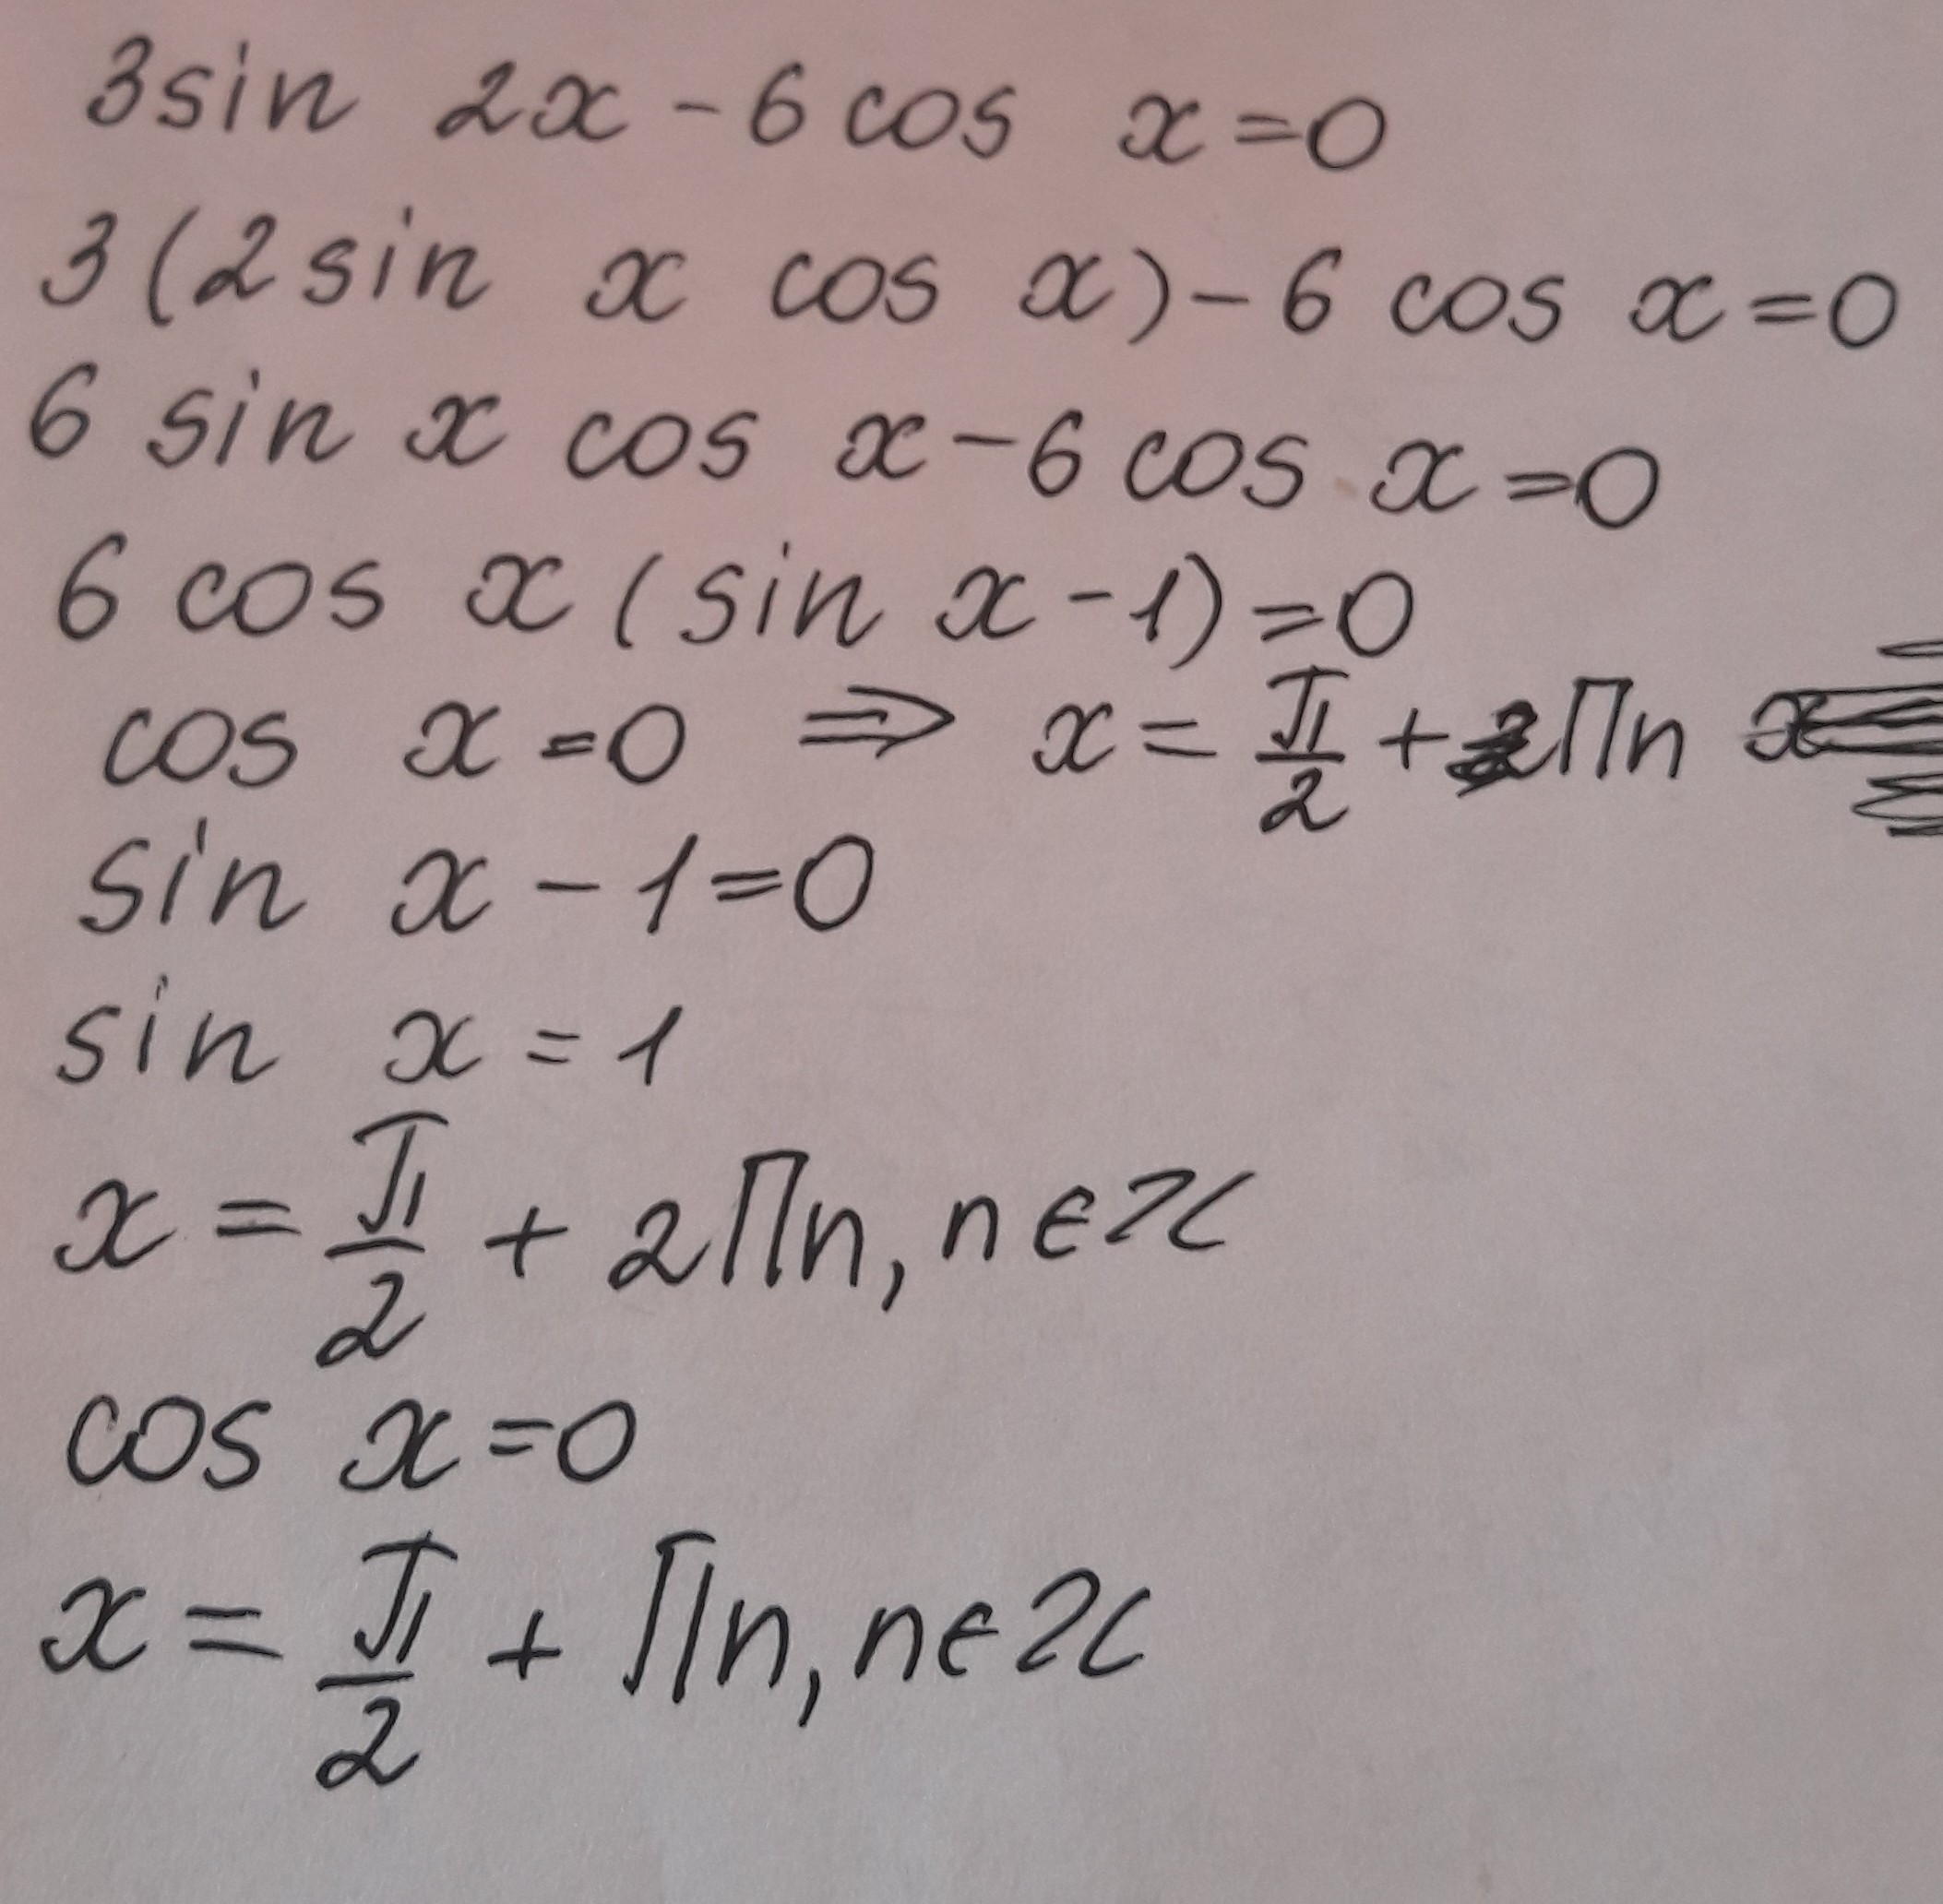 3sin 2x - 6 cos x = 0
3(2 sin x cos x) - 6 cos x = 0
6 sin x cos x - 6 cos x = 0
6 cos x (sin x - 1) = 0
cos x = 0 ⇒ x = π/2 + 2Πn
sin x - 1 = 0
sin x = 1
x = π/2 + 2Πn, n ∈ Z
cos x = 0
x = π/2 + Πn, n ∈ Z